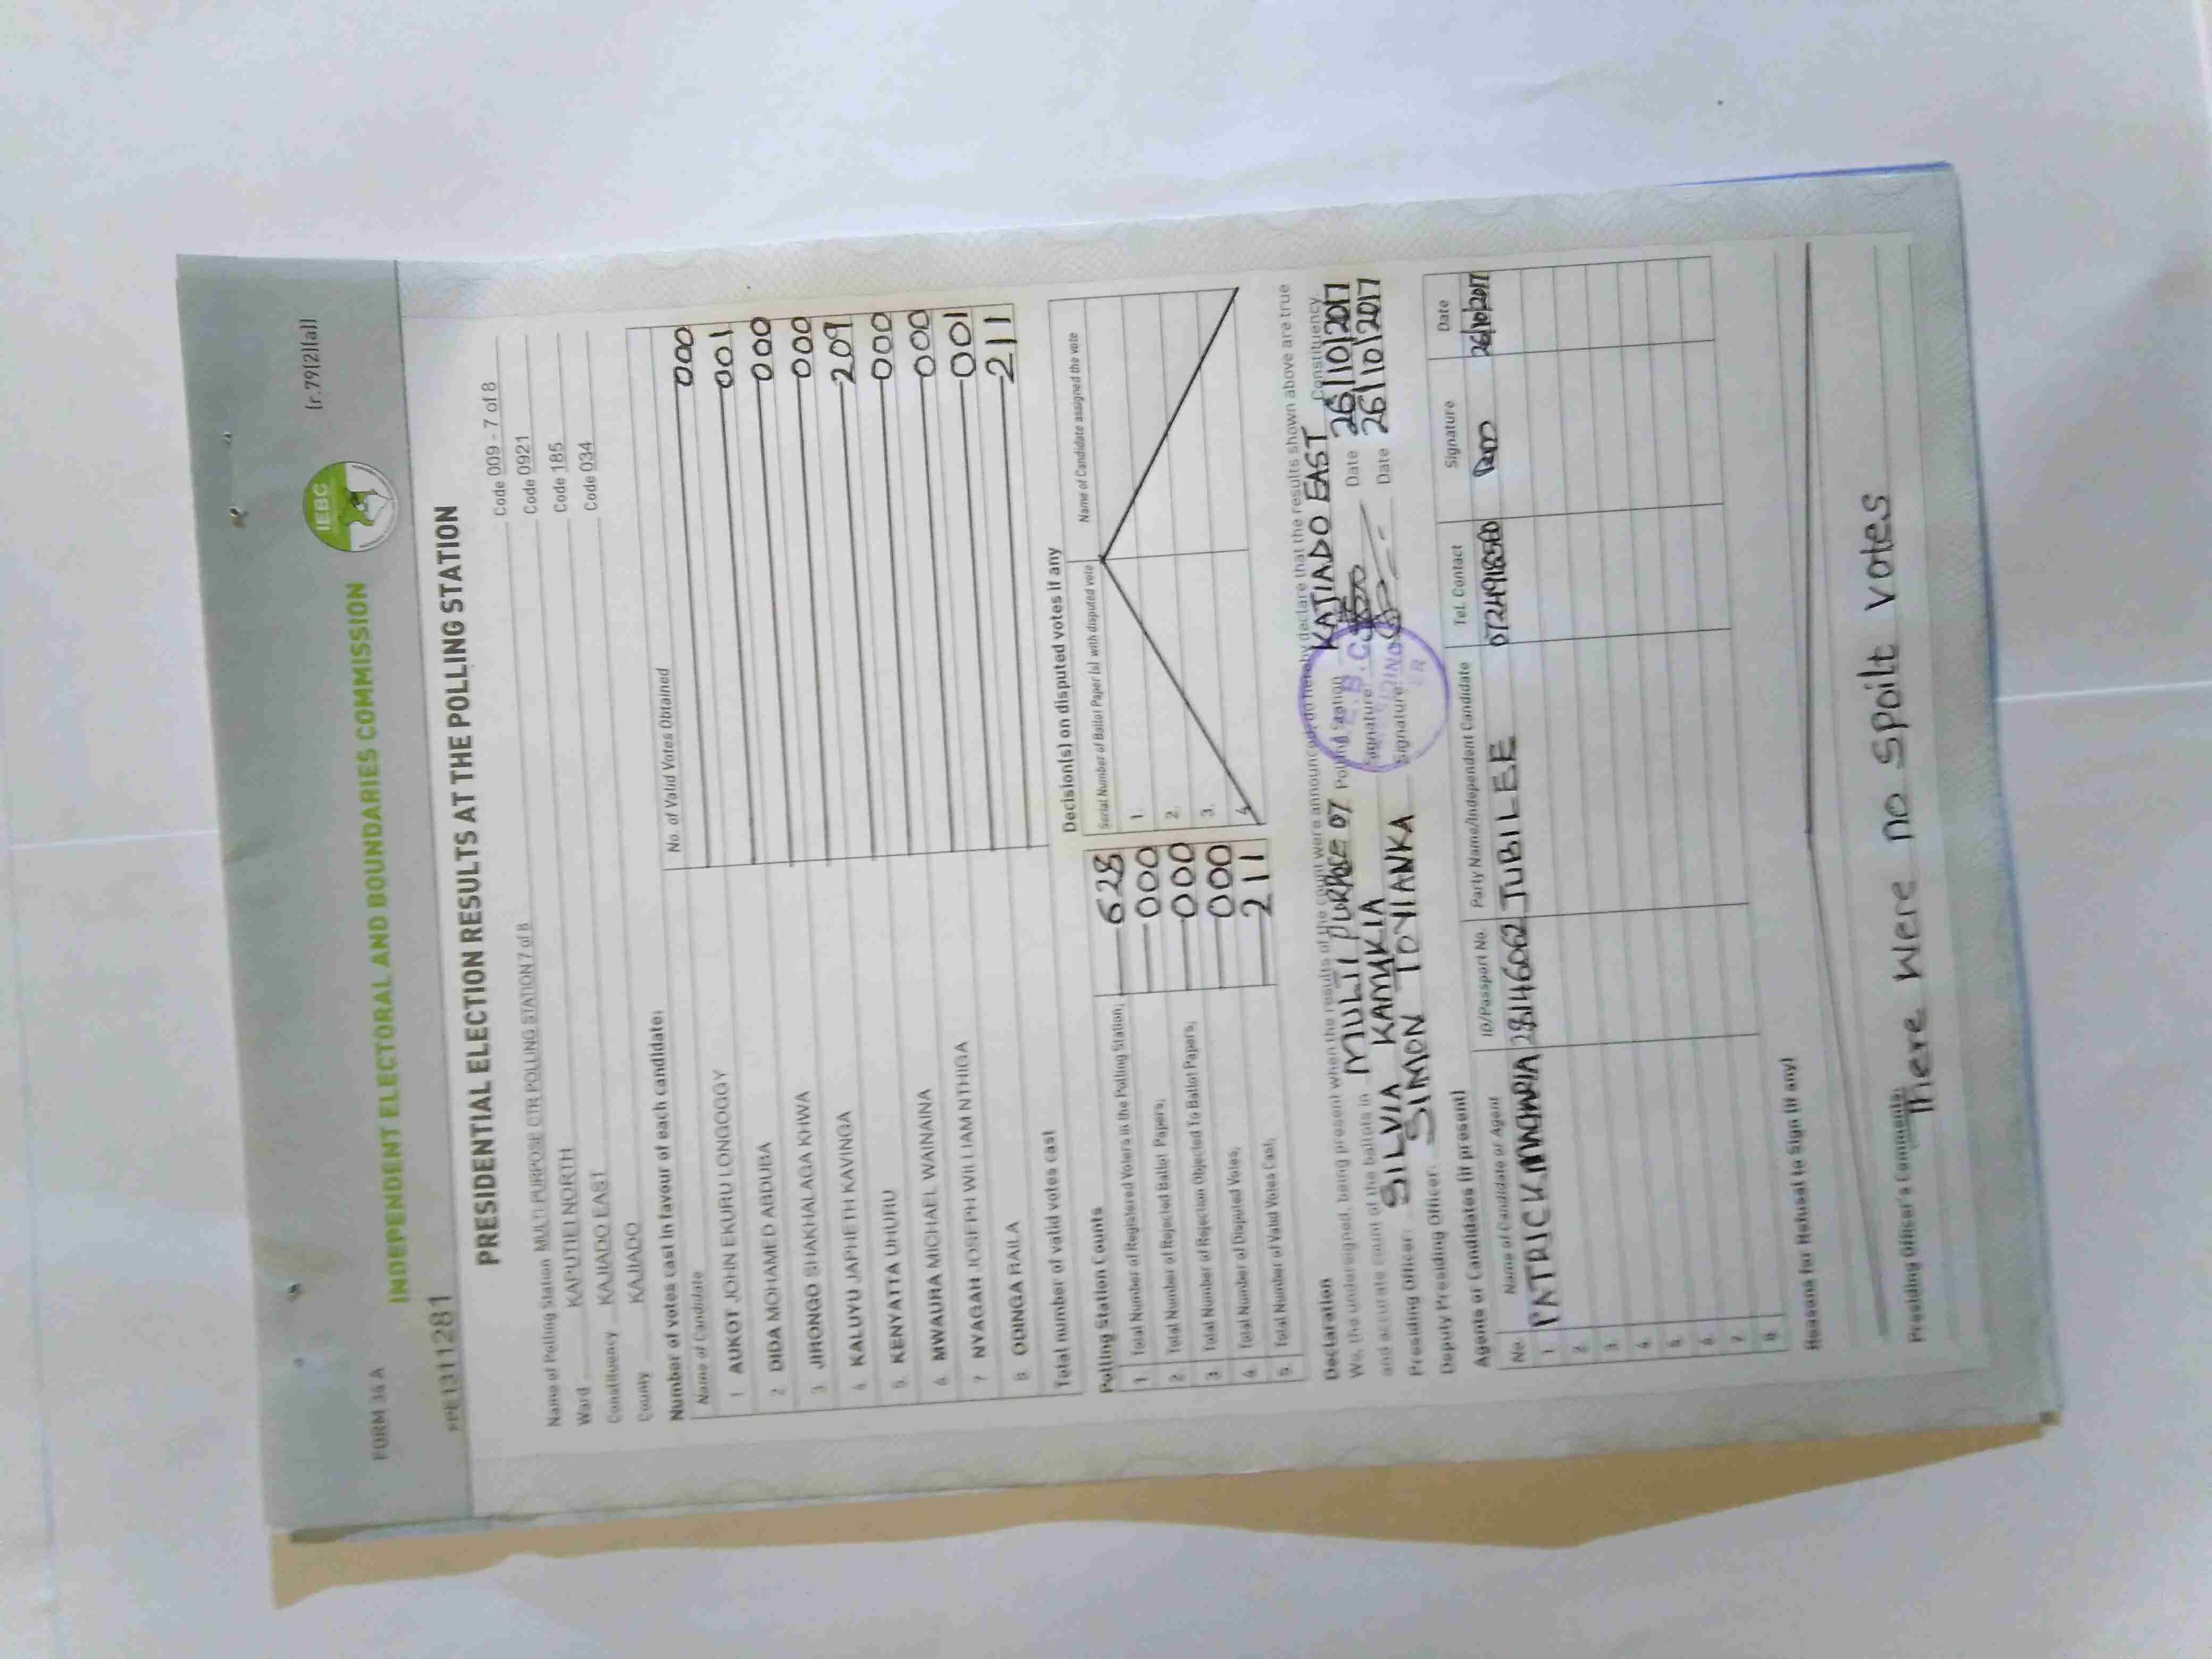 FORM 34 A
[r.79(2)(a)]
IEBC
INDEPENDENT ELECTORAL AND BOUNDARIES COMMISSION
PPE1311281
PRESIDENTIAL ELECTION RESULTS AT THE POLLING STATION
Name of Polling Station MULTI-PURPOSE CTR POLLING STATION 7 of 8 Code 009 - 7 of 8
Ward KAPUTIEI NORTH Code 0921
Constituency KAJIADO EAST Code 185
County KAJIADO Code 034
Number of votes cast in favour of each candidate:
Name of Candidate No. of Valid Votes Obtained
1 AUKOT JOHN EKURU LONGOGGY 000
2 DIDA MOHAMED ABDUBA 001
3 JIRONGO SHAKHALAGA KHWA 000
4 KALUYU JAPHETH KAVINGA 000
5. KENYATTA UHURU 209
6 MWAURA MICHAEL WAINAINA 000
7 NYAGAH JOSEPH WILLIAM NTHIGA 000
8 ODINGA RAILA 001
Total number of valid votes cast 211
Polling Station Counts
1. Total Number of Registered Voters in the Polling Station; 628
2. Total Number of Rejected Ballot Papers; 000
3. Total Number of Rejection Objected To Ballot Papers; 000
4. Total Number of Disputed Votes; 000
5. Total Number of Valid Votes Cast; 211
Decision(s) on disputed votes if any
Serial Number of Ballot Paper (s) with disputed vote Name of Candidate assigned the vote
1.
2.
3.
4.
Declaration
We, the undersigned, being present when the results of the count were announced, do hereby declare that the results shown above are true
and accurate count of the ballots in MULTI PURPOSE 07 Polling Station KAJIADO EAST Constituency
Presiding Officer: SILVIA KAMUKIA Signature Date 26/10/2017
Deputy Presiding Officer: SIMON TOYIANKA Signature Date 26/10/2017
Agents or Candidates (if present)
No. Name of Candidate or Agent ID/Passport No. Party Name/Independent Candidate Tel. Contact Signature Date
1 PATRICK 28146062 JUBILEE 26/10/2017
2
3
4
5
6
7
8
Reasons for Refusal to Sign (if any)
Presiding Officer's Comments:
There were no spoilt votes